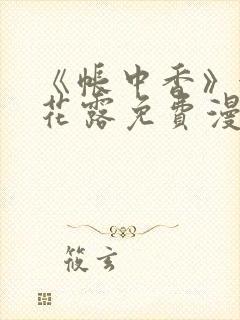 《帐中香》
花露免费漫
筱玄